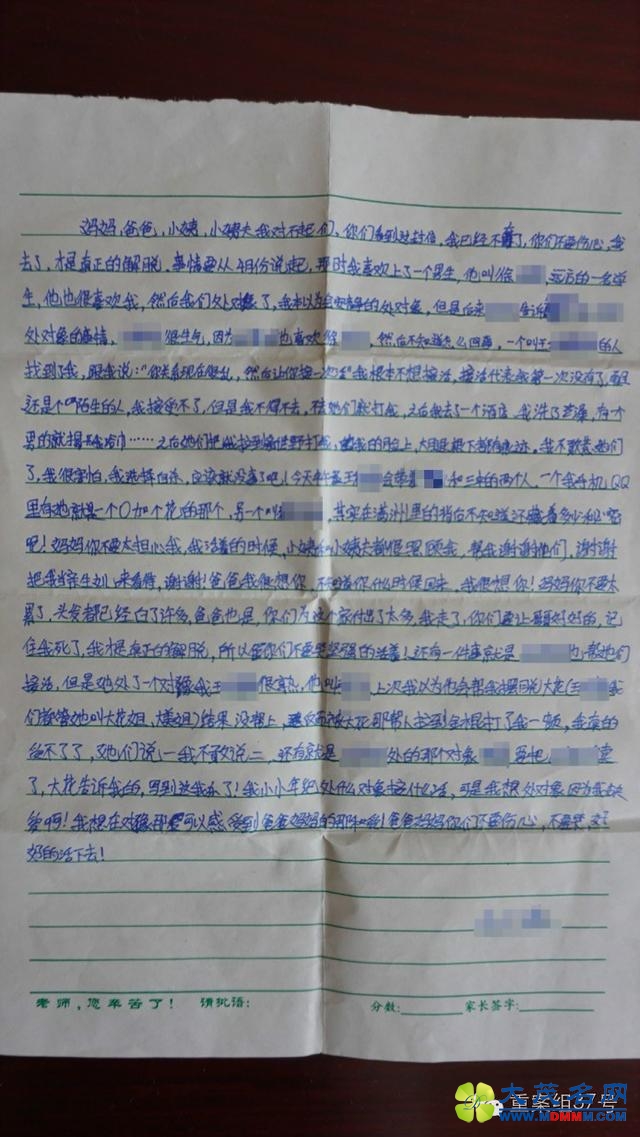 妈妈,爸爸,小姨,小姨夫我对不起们,你们看到这封信,我已经不在了,你们不要伤心,我
去了,才是真正的解脱。事情要从4月份说起,那时我喜欢上了一个男生,他叫徐 远方的一名学
生,他也很喜欢我,然后我们处对象了,我本以为会安静的处对象,但是后来 告诉
处对象的事情, 很生气,因为 也喜欢徐 ,然后不知道怎么回事,一个叫王 的人
找到了我,跟我说:"你关系现在很乱,然后让你接一次活"我根本不想接活,接活代表我第一次没有了,而且
还是个陌生的人,我接受不了,但是我不得不去,不去她们就打我,之后我去了一个酒店,我洗了苦澡,有个
男的就 我 ……之后她们把我拉到 野打我, 我的脸上,大腿根下都有痕迹,我不敢惹她们
了,我很害怕,我选择自杀,应该就没事了吧!今天中午 王 会带着 和三来的两个人,一个我手机QQ
里有她就是一个〇加个花的那个,另一个叫 ,其实在满洲里的背后不知道还藏着多少秘密
吧!妈妈你不要太担心我,我活着的时候,小姨和小姨夫都很照顾我,帮我谢谢他们,谢谢
把我当亲生 来看待,谢谢!爸爸我很想你,不知道你什么时候回来,我很想你!妈妈你不要太
累了,头发都已经白了许多,爸爸也是,你们为这个家付出了太多,我走了,你们要让哥哥好好的,记
住我死了,我才是真正的解脱,所以 你们不要 坚强的活着!还有一件事就是 也 帮她们
接活,但是她处了一个对象 王 很 ,他叫 上次我以为他会帮我摆脱大花(王 我
们都管她叫大花姐, 姐)结果没想上, 反而 大花那帮人找到 狠打了我一顿,我真的
受不了了,她们说(一我不敢说二,还有就是 处的那个对象 要把 卖
了,大花告诉我的,写到这我乐了!我小小年纪处什么对象接什么活,可是我想处对象因为我缺
爱啊!我想在对象那 可以感受到爸爸妈妈的那种爱!爸爸妈妈你们不要伤心,不要哭,好
好的活下去!
老师,您辛苦了! 请批语: 分数: 家长签字:
重案组37号
大茂名网
WWW.MDMMM.COM